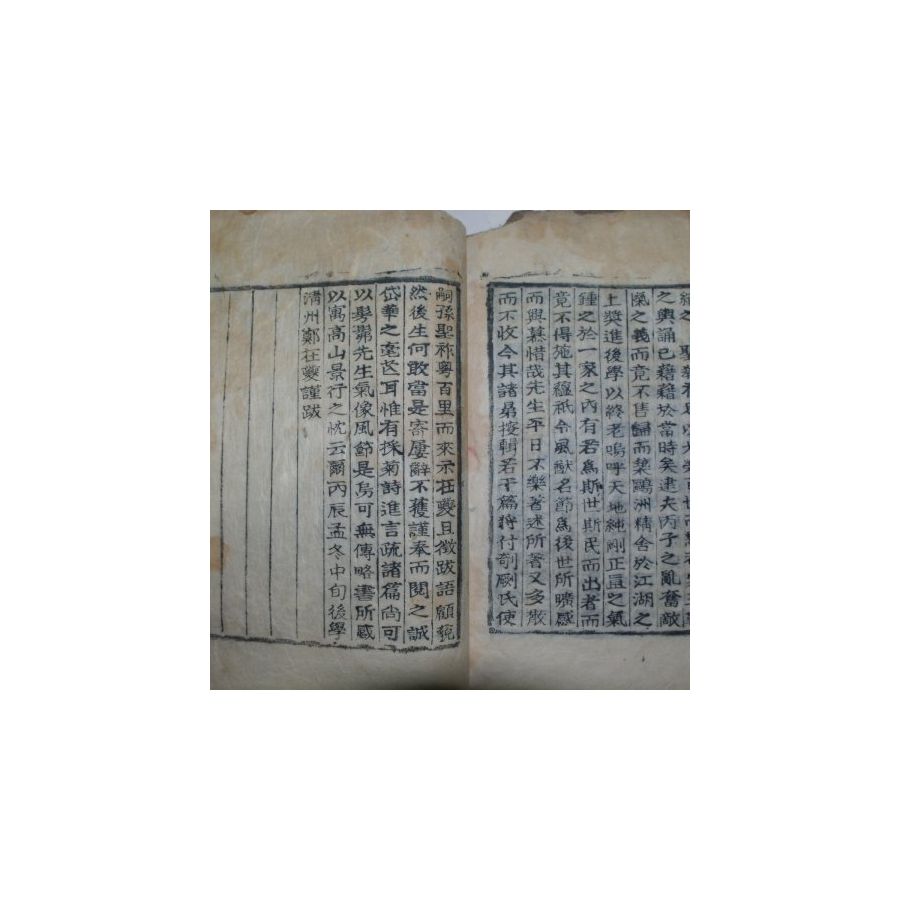 之輿誦已藉藉於當時矣逮夫丙子之亂奮敵
之義而竟不售歸而築鷗洲精舍於江湖之
上奬進後學以終老嗚呼天地純剛正直之氣
鍾之於一家之內有若爲斯世斯民而出者而
竟不得施其蘊祇令風猷名節爲後世所曠感
而興慕惜哉先生平日不樂著述所著又多散
而不收今其諸弟按輯若干篇將付剞劂氏使
嗣孫聖祚粤百里而來示在夔且徵跋語顧藐
然後生何敢當是寄屢辭不獲謹奉而閱之誠
岱華之毫芒耳惟有採菊詩進言疏諸篇尚可
以髣髴先生氣像風節是烏可無傳略書所感
以寓高山景行之忱云爾丙辰孟冬中旬後學
淸州鄭在夔謹跋